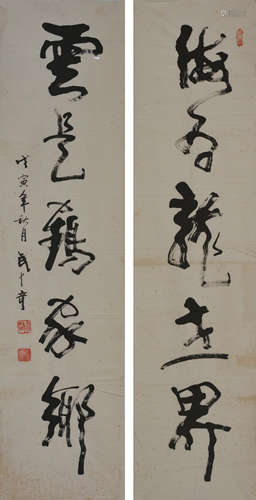 海為龍世界
雲是鶴家鄉
戊寅年秋月 武中奇